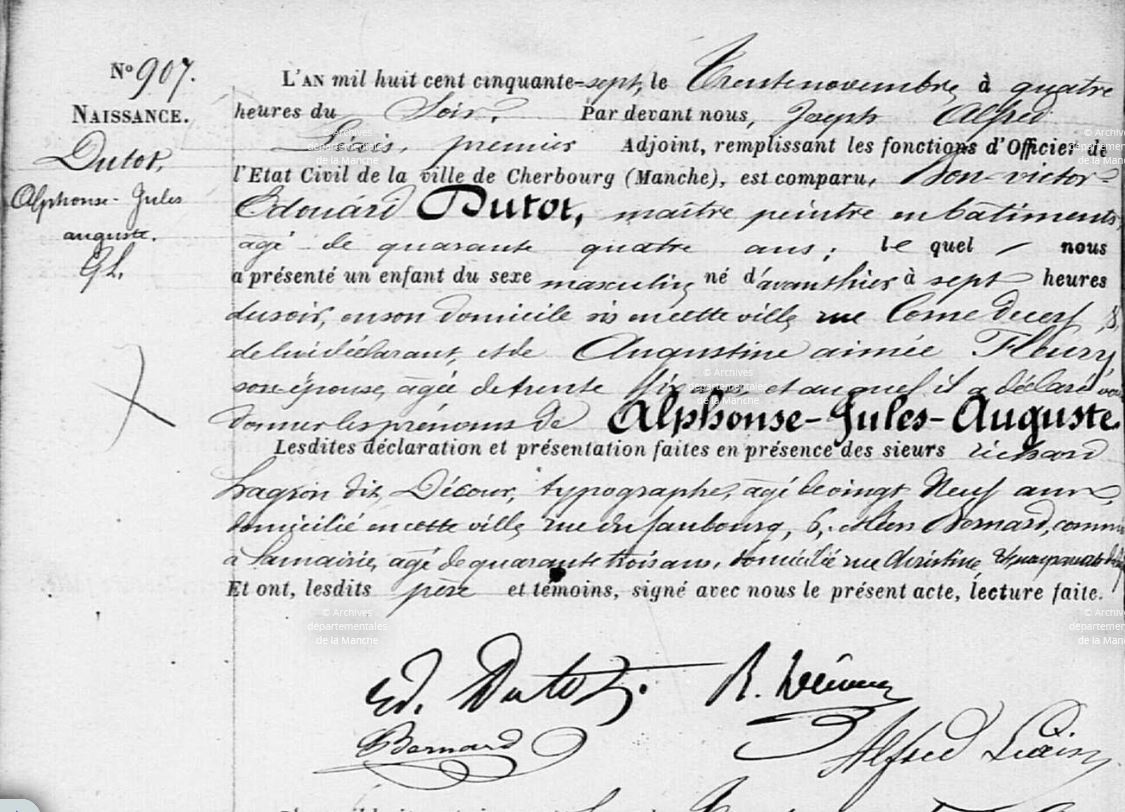 N° 907.
NAISSANCE.
Dutot,
Alphonse-Jules
auguste.
L'AN mil huit cent cinquante-sept, le Trente novembre, à quatre
heures du Soir, Par devant nous, Joseph Alfred
Liais, premier Adjoint, remplissant les fonctions d'Officier de
l'Etat Civil de la ville de Cherbourg (Manche), est comparu, Bon-victor-
Edouard Dutot, maître peintre en batiments,
agé de quarante quatre ans; le quel nous
a présenté un enfant du sexe masculin né d'avanthier à sept heures
du soir, en son domicile sis en cette ville, rue Corne de cerf,
de lui déclarant, et de Augustine aimée Fleury
son épouse, agée de trente ans, et auquel il a déclaré
donner les prénoms de Alphonse-Jules-Auguste.
Lesdites déclaration et présentation faites en présence des sieurs richard
dit Décour, typographe, agé de vingt Neuf ans,
domicilié en cette ville, rue du faubourg, 6, Bernard, commis
a la mairie, agé de quarante trois ans, domicilié rue christine
Et ont, lesdits père et témoins, signé avec nous le présent acte, lecture faite.
Ed. Dutot.
Bernard
Alfred Liais
© Archives
départementales
de la Manche